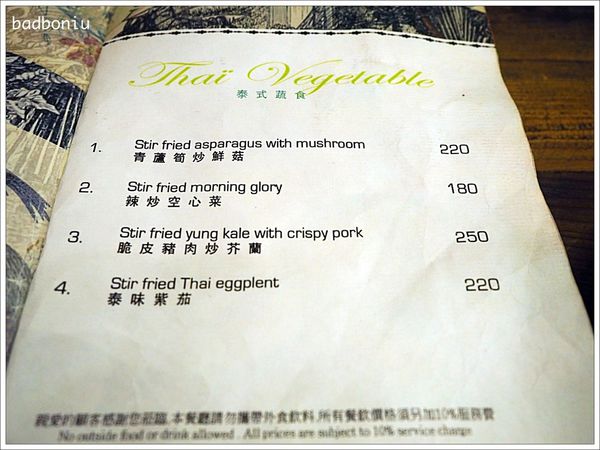 badboniu
Thaï Vegetable
泰式蔬食
1. Stir fried asparagus with mushroom 220
青蘆筍炒鮮菇
2. Stir fried morning glory 180
辣炒空心菜
3. Stir fried yung kale with crispy pork 250
脆皮豬肉炒芥蘭
4. Stir fried Thai eggplent 220
泰味紫茄
親愛的顧客感謝您蒞臨,本餐廳請勿攜帶外食飲料,所有餐飲價格須另加10%服務費
No outside food or drink allowed . All prices are subject to 10% service charge